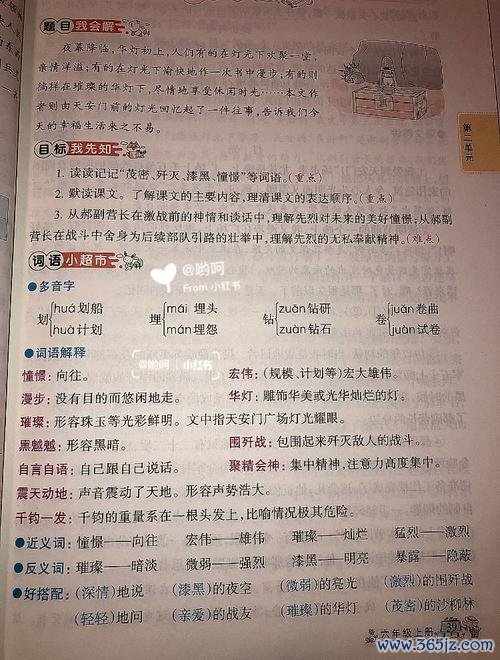 题目我会解
夜幕降临,华灯初上,人们有的在灯光下欢聚一堂,
亲情洋溢;有的在灯光下愉快地作一次书中漫步;有的则
徜徉在璀璨的华灯下,尽情地享受休闲时光……本文作
者则由天安门前的灯光回忆起了一件往事,告诉我们今
天的幸福生活来之不易。
第二单元
目标我先知
1. 读读记记“茂密、歼灭、漆黑、憧憬”等词语。(重点)
2. 默读课文。了解课文的主要内容,理清课文的表达顺序。(重点)
3. 从郝副营长在激战前的神情和谈话中,理解先烈对未来的美好憧憬;从郝副
营长在战斗中舍身为后续部队引路的壮举中,理解先烈的无私奉献精神。(难点)
词语小超市
@哟呵
From 小红书
●多音字
划{huá划船 huà计划 埋{mái埋头 mán埋怨 钻{zuān钻研 zuàn钻石 卷{juǎn卷曲 juàn试卷
●词语解释
@哟呵 | 小红书
憧憬:向往。 宏伟:(规模、计划等)宏大雄伟。
漫步:没有目的而悠闲地走。 华灯:雕饰华美或光华灿烂的灯。
璀璨:形容珠玉等光彩鲜明。文中指天安门广场灯光耀眼。
黑魆魆:形容黑暗。 围歼战:包围起来歼灭敌人的战斗。
自言自语:自己跟自己说话。 聚精会神:集中精神,注意力高度集中。
震天动地:声音震动了天地。形容声势浩大。
千钧一发:千钧的重量系在一根头发上,比喻情况极其危险。
●近义词:憧憬——向往 宏伟——雄伟 璀璨——灿烂 猛烈——激烈
●反义词:璀璨——暗淡 微弱——强烈 漆黑——明亮 暴露——隐蔽
●好搭配:(深情)地说 (漆黑)的夜空 (微弱)的亮光 (激烈)的围歼战
(轻轻)地问 (亲爱)的战友 (璀璨)的华灯 (茂密)的沙柳林
39
六年级上册
https://www.365jz.com